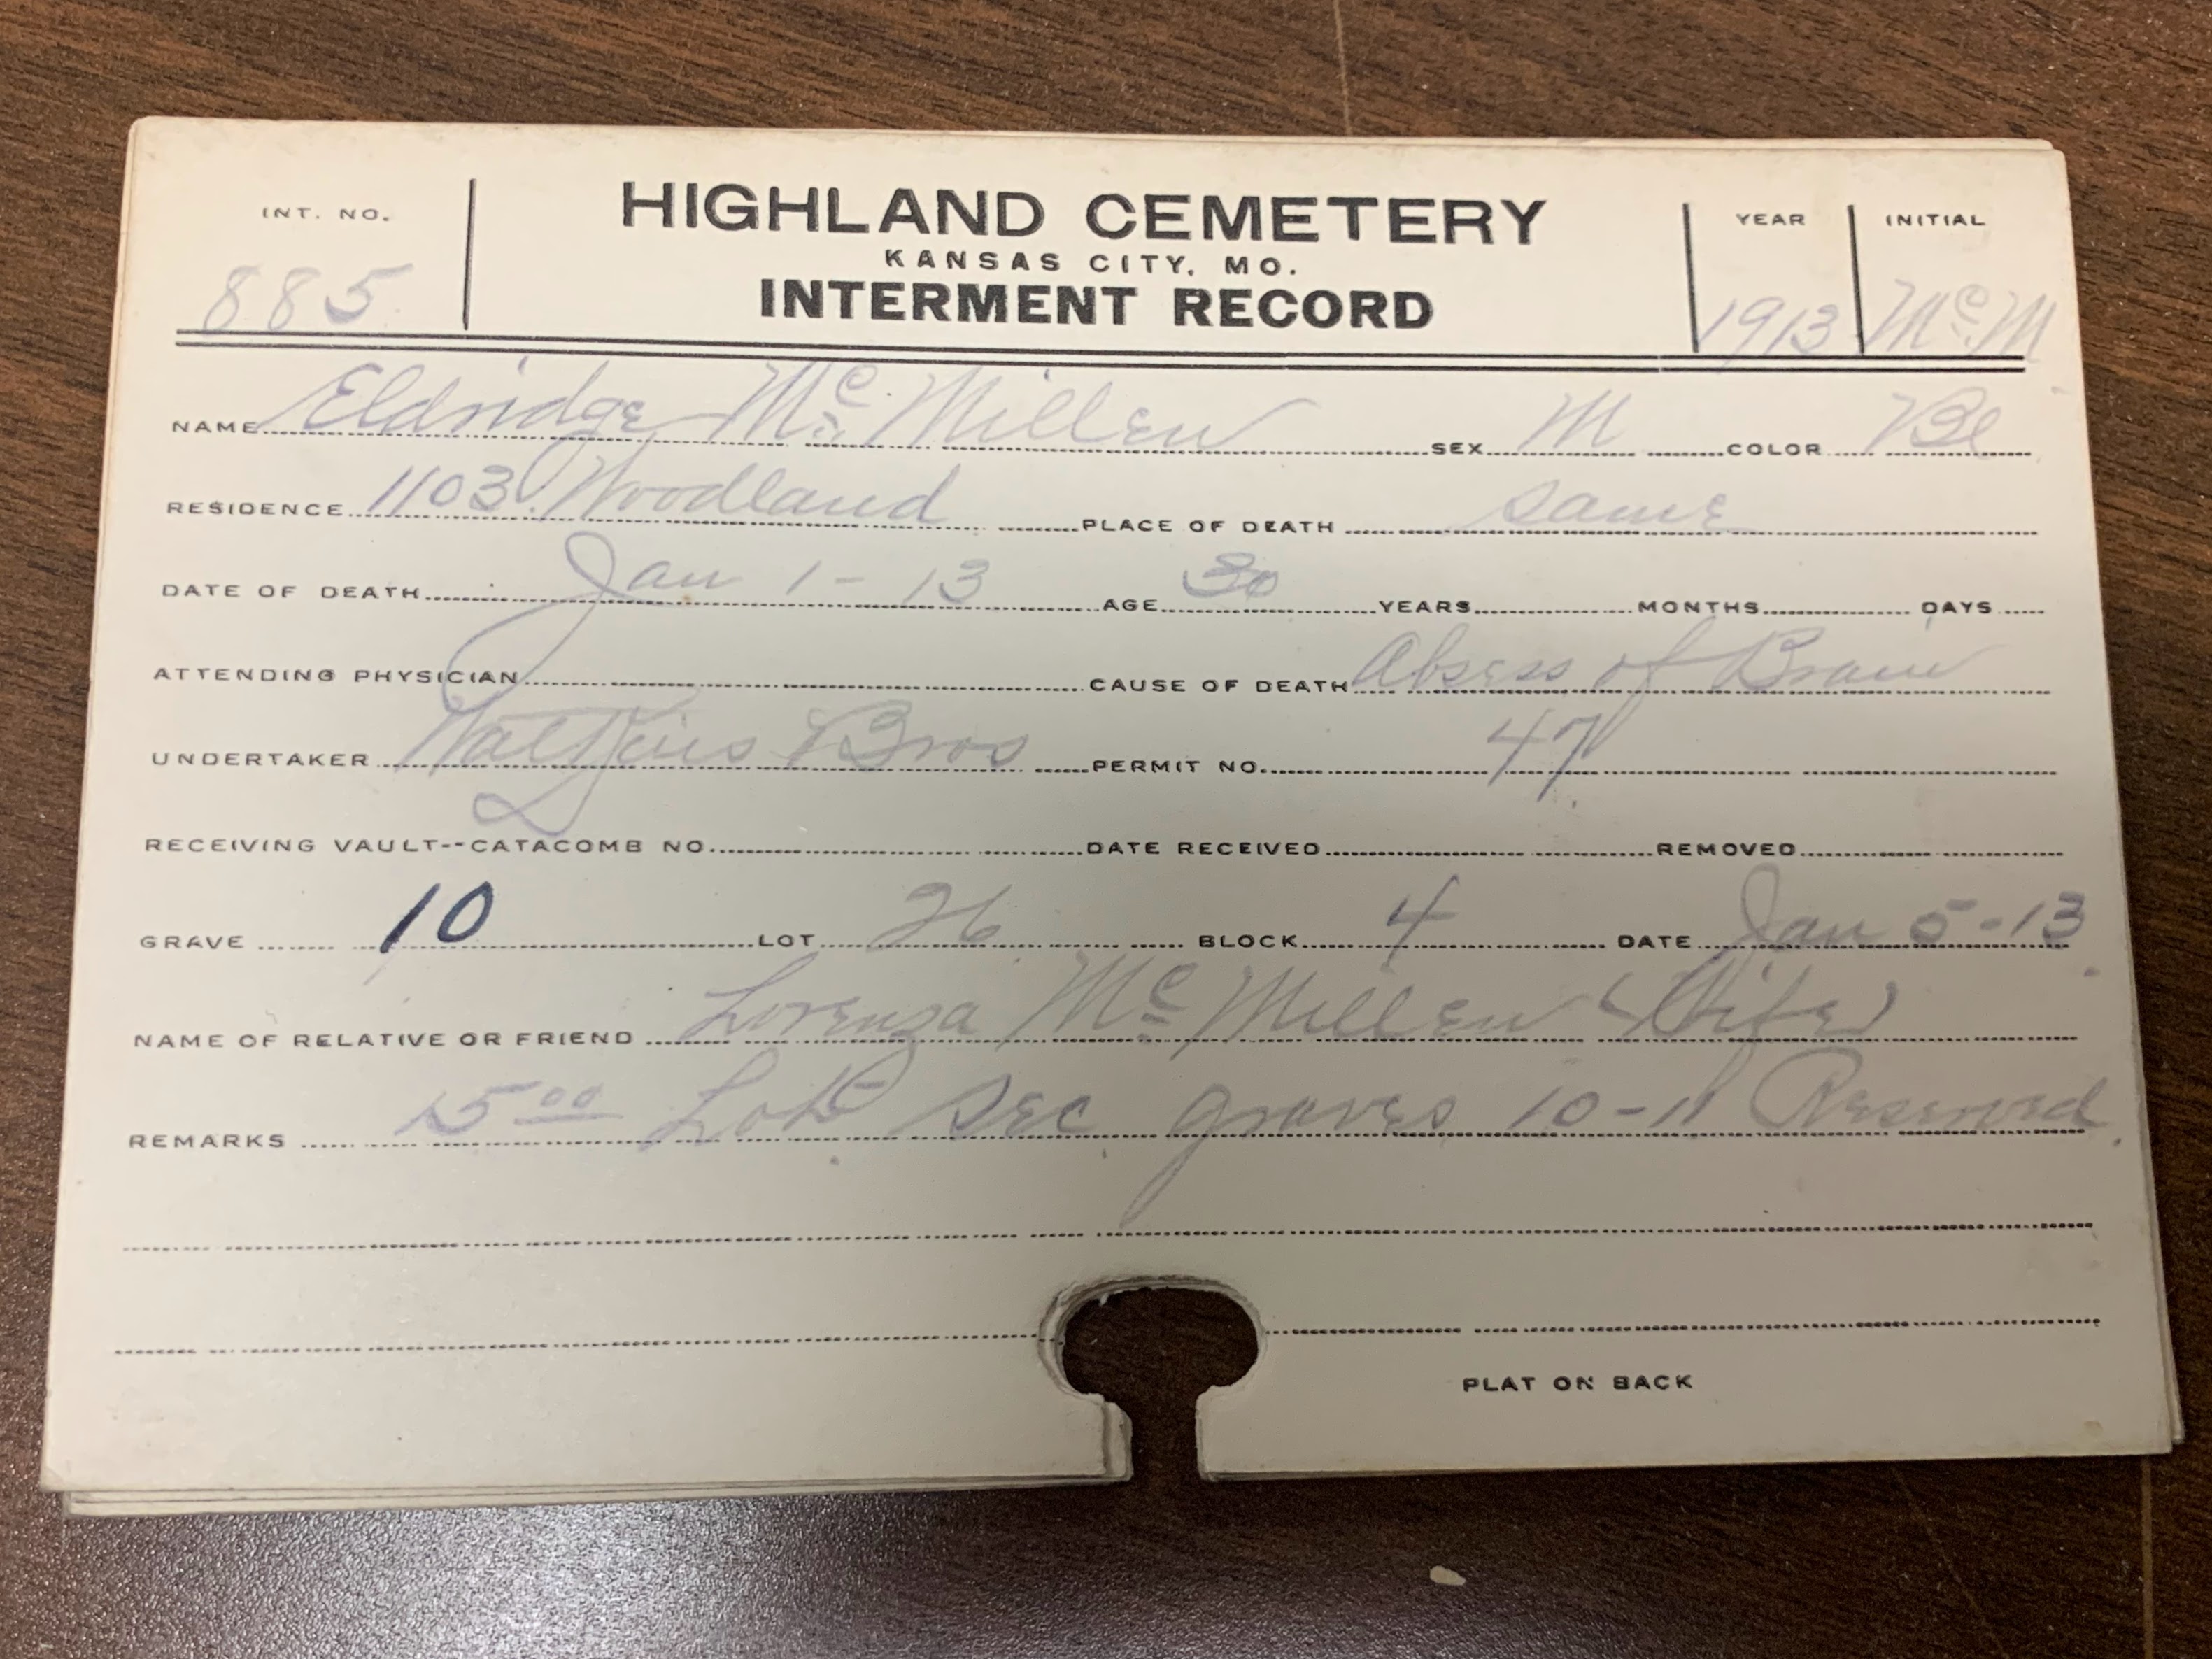 INT. NO. HIGHLAND CEMETERY YEAR INITIAL
KANSAS CITY, MO.
885 INTERMENT RECORD 1913 McM
NAME Eldridge McMillen SEX M COLOR Bl
RESIDENCE 1103 Woodland PLACE OF DEATH same
DATE OF DEATH Jan 1-13 AGE 30 YEARS MONTHS DAYS
ATTENDING PHYSICIAN CAUSE OF DEATH Absess of Brain
UNDERTAKER Watkins Bros PERMIT NO. 47
RECEIVING VAULT--CATACOMB NO. DATE RECEIVED REMOVED
GRAVE 10 LOT 26 BLOCK 4 DATE Jan 5-13
NAME OF RELATIVE OR FRIEND Lorenza McMillen (Wife)
REMARKS sec graves 10-11 Reserved
PLAT ON BACK